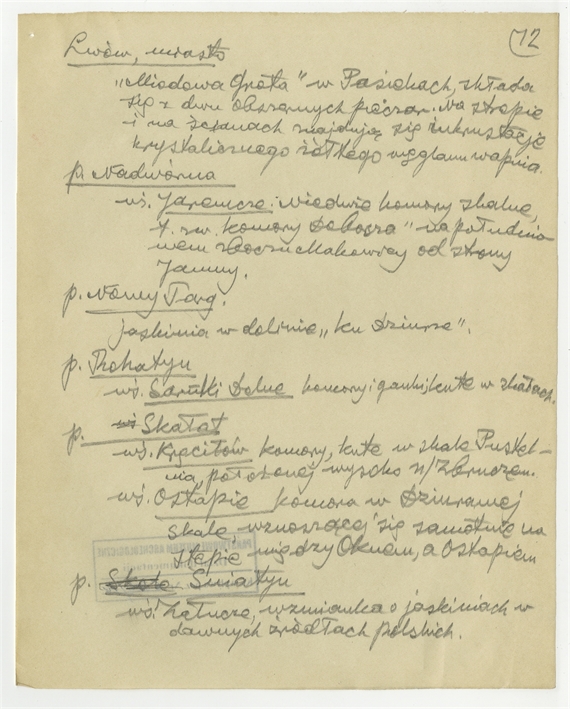 12
Lwów, miasto
„Miodowa Grota" w Pasiekach, składa
się z dwu obszernych pieczar. Na stropie
i na ścianach znajdują się inkrustacje
krystalicznego żółtego węglanu wapnia.
p. Nadwórna
wś. Jaremcze: niedwie komory skalne,
t. zw. komory Dobosza" na południo
wem zboczu Makowicy od strony
Jamny.
p. Nowy Targ.
jaskinia w dolinie „ku Dziurze".
p. Rohatyn
wś. Sarnki Dolne komory i ganki kute w skałach.
p. wś Skałat
wś. Kręciłów komory, kute w skale Pustel-
nia, położonej wysoko n/Zbruczem.
wś. Ostapie komora w Dziurawej
Skale, wznoszącej się samotnie na
stepie między Oknem, a Ostapiem
p. Skole Śniatyn
wś. Załucze, wzmianka o jaskiniach w
dawnych źródłach polskich.